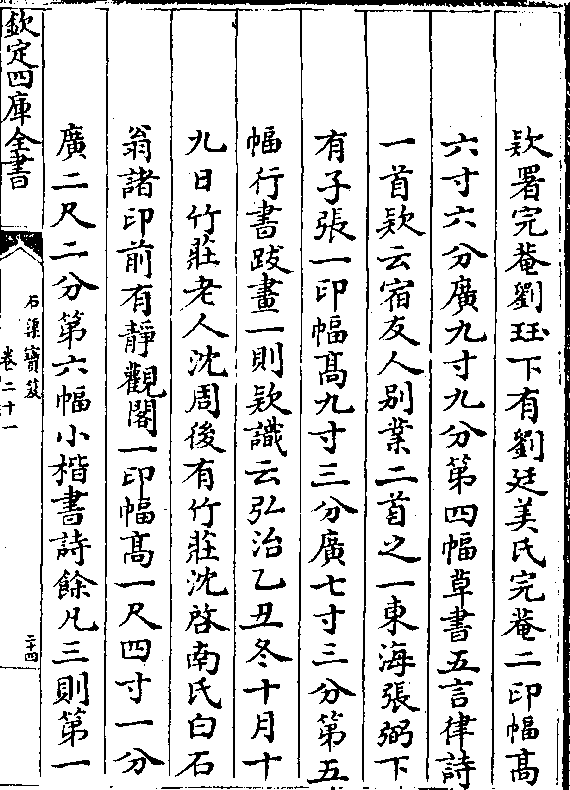 欵署完菴劉珏下有劉廷美氏完菴二印幅髙
六寸六分廣九寸九分第四幅草書五言律詩
一首欵云宿友人别業二首之一東海張弼下
有子張一印幅髙九寸三分廣七寸三分第五
幅行書跋畫一則欵識云弘治乙丑冬十月十
九日竹莊老人沈周後有竹莊沈啓南氏白石
翁諸印前有靜觀閣一印幅髙一尺四寸一分
廣二尺二分第六幅小楷書詩餘凡三則第一
欽定四庫全書
石渠寶笈
卷二十一
二十四